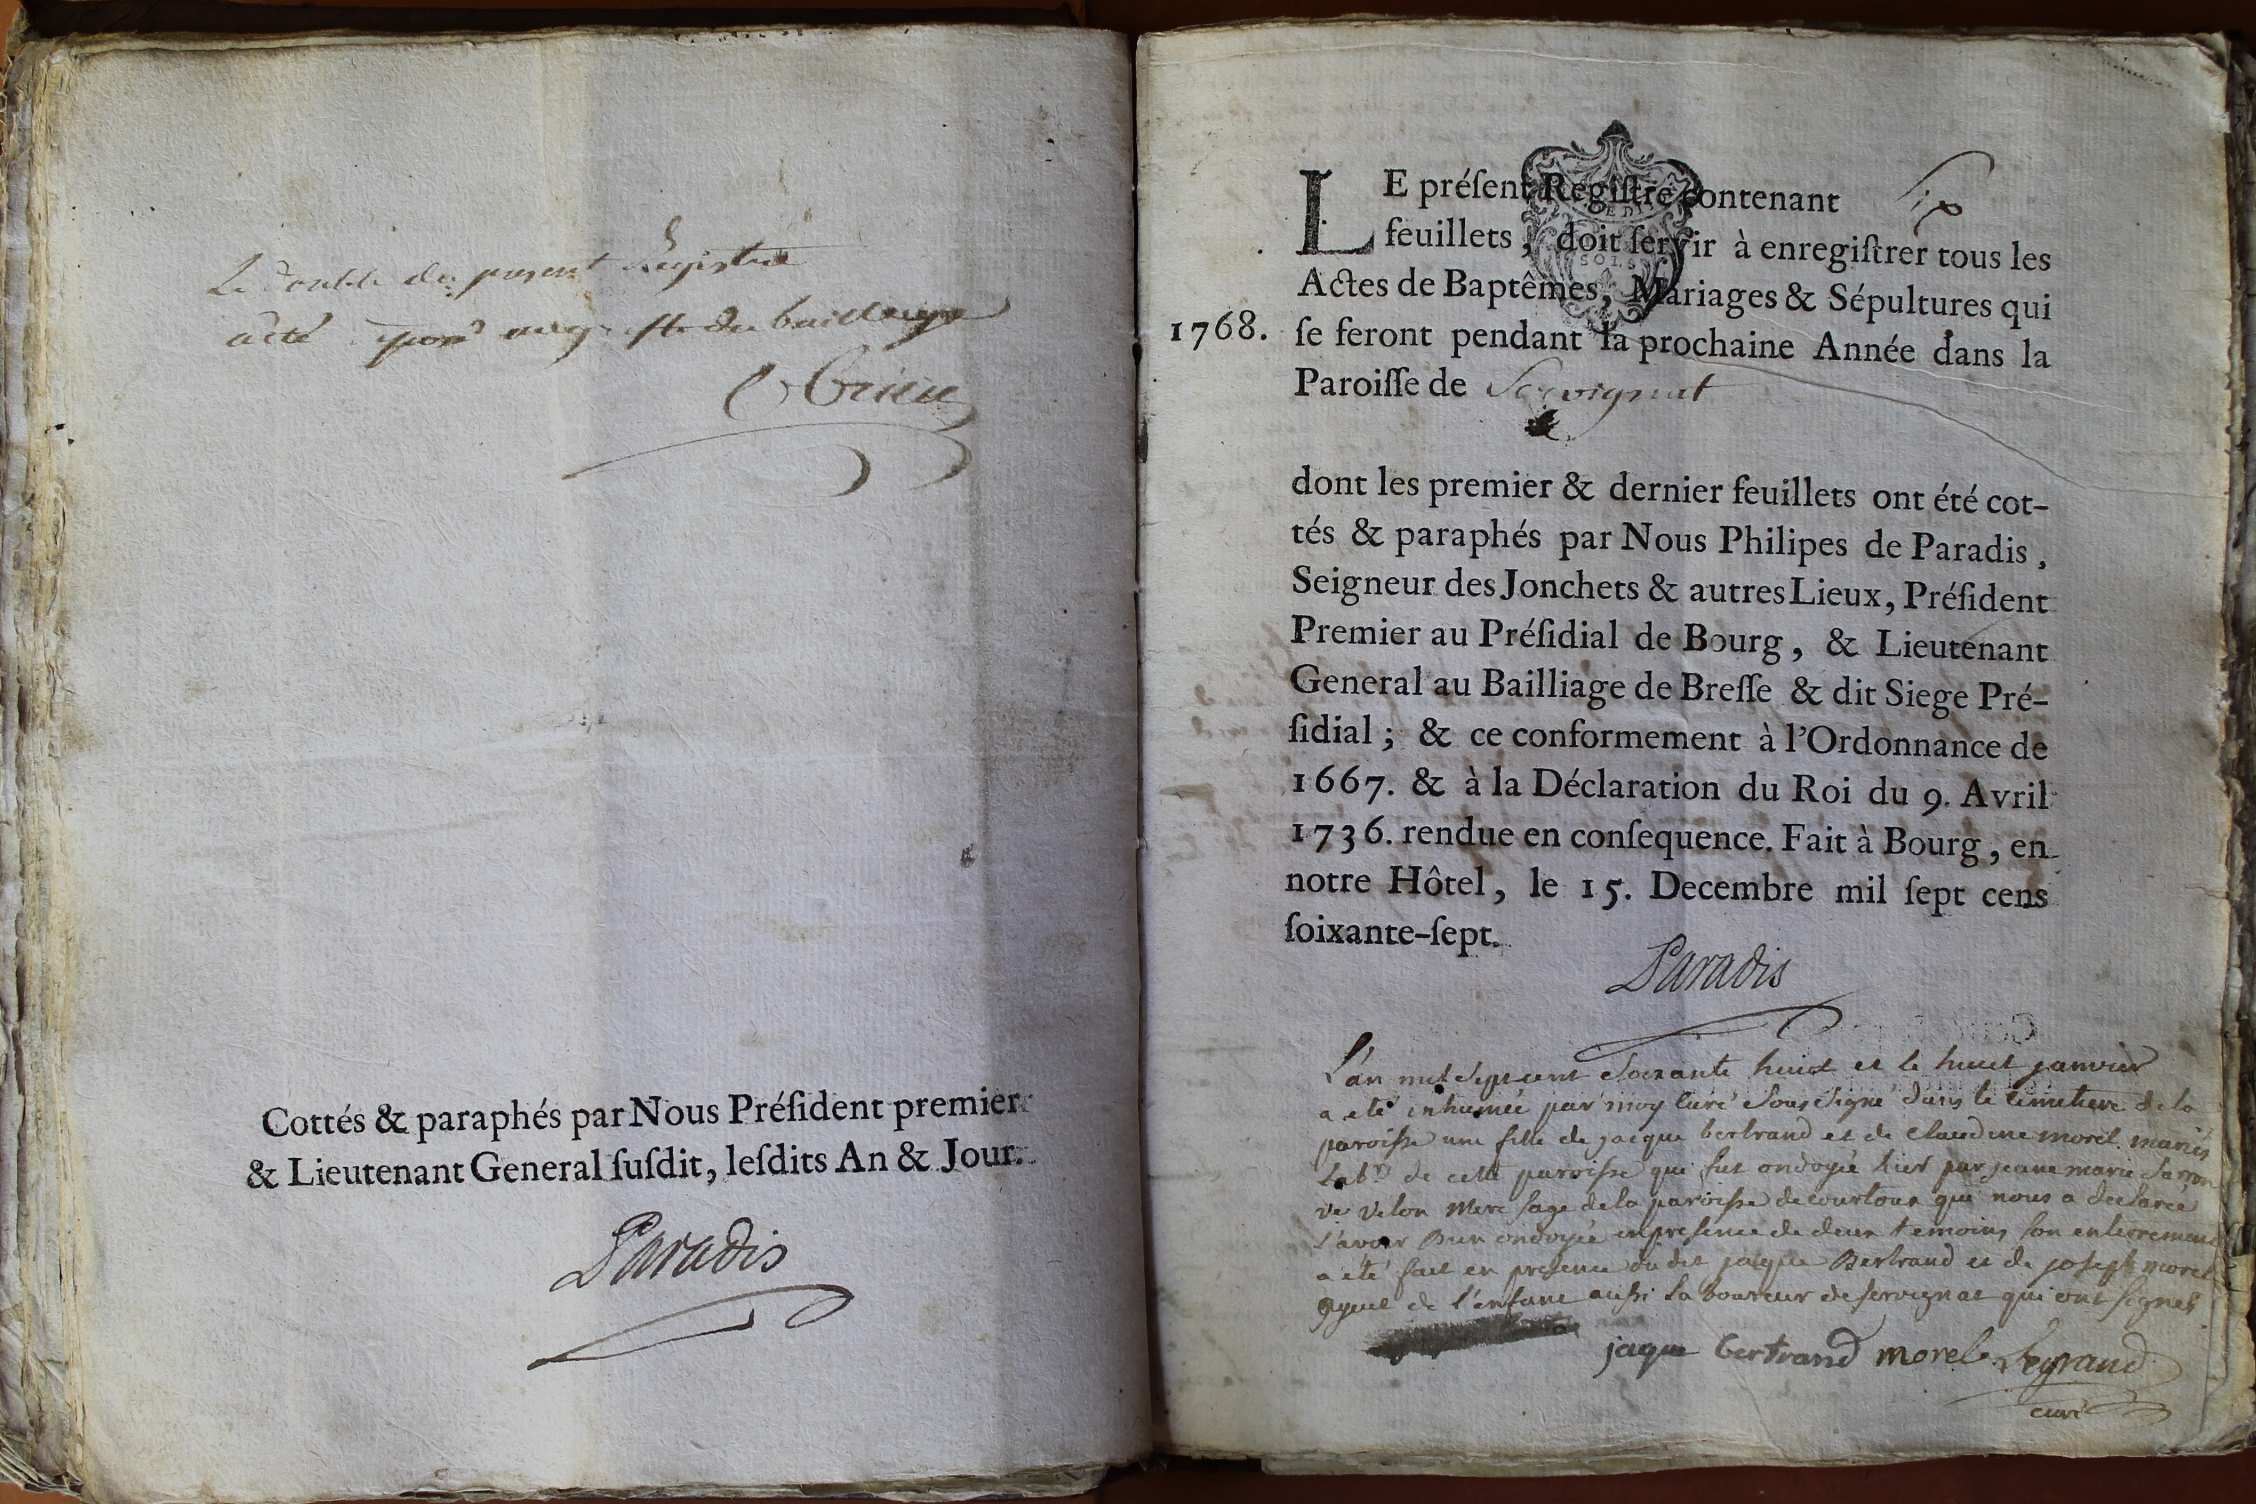 Le double du present Registre
a été au greffe du bailliage
Cottés & paraphés par Nous Préſident premier
& Lieutenant General ſuſdit, leſdits An & Jour.
Paradis
LE préſent Regiſtre contenant Six
feuillets, doit ſervir à enregiſtrer tous les
Actes de Baptêmes, Mariages & Sépultures qui
1768. ſe feront pendant la prochaine Année dans la
Paroiſſe de Servignat
dont les premier & dernier feuillets ont été cot-
tés & paraphés par Nous Philipes de Paradis,
Seigneur des Jonchets & autres Lieux, Préſident
Premier au Préſidial de Bourg, & Lieutenant
General au Bailliage de Breſſe & dit Siege Pré-
ſidial; & ce conformement à l'Ordonnance de
1667. & à la Déclaration du Roi du 9. Avril
1736. rendue en conſequence. Fait à Bourg, en
notre Hôtel, le 15. Decembre mil ſept cens
ſoixante-ſept.
Paradis
L'an mil sept cent soixante huict et le huit janvier
a eté inhumée par moy curé sous signé dans le cimetiere de la
paroisse une fille de jacque bertrand et de claudine morel mariés
lab.rs de cette paroisse qui fut ondoyée hier par jeane marie
ve velon mere sage de la paroisse de courtoux qui nous a declaree
l'avoir bien ondoyée en presence de deux temoins son enterrement
a eté fait en presence du dit jacque Bertrand et de joseph morel
ayeul de l'enfant aussi laboureur de servignat qui ont signés
jaque bertrand morel Legrand
curé